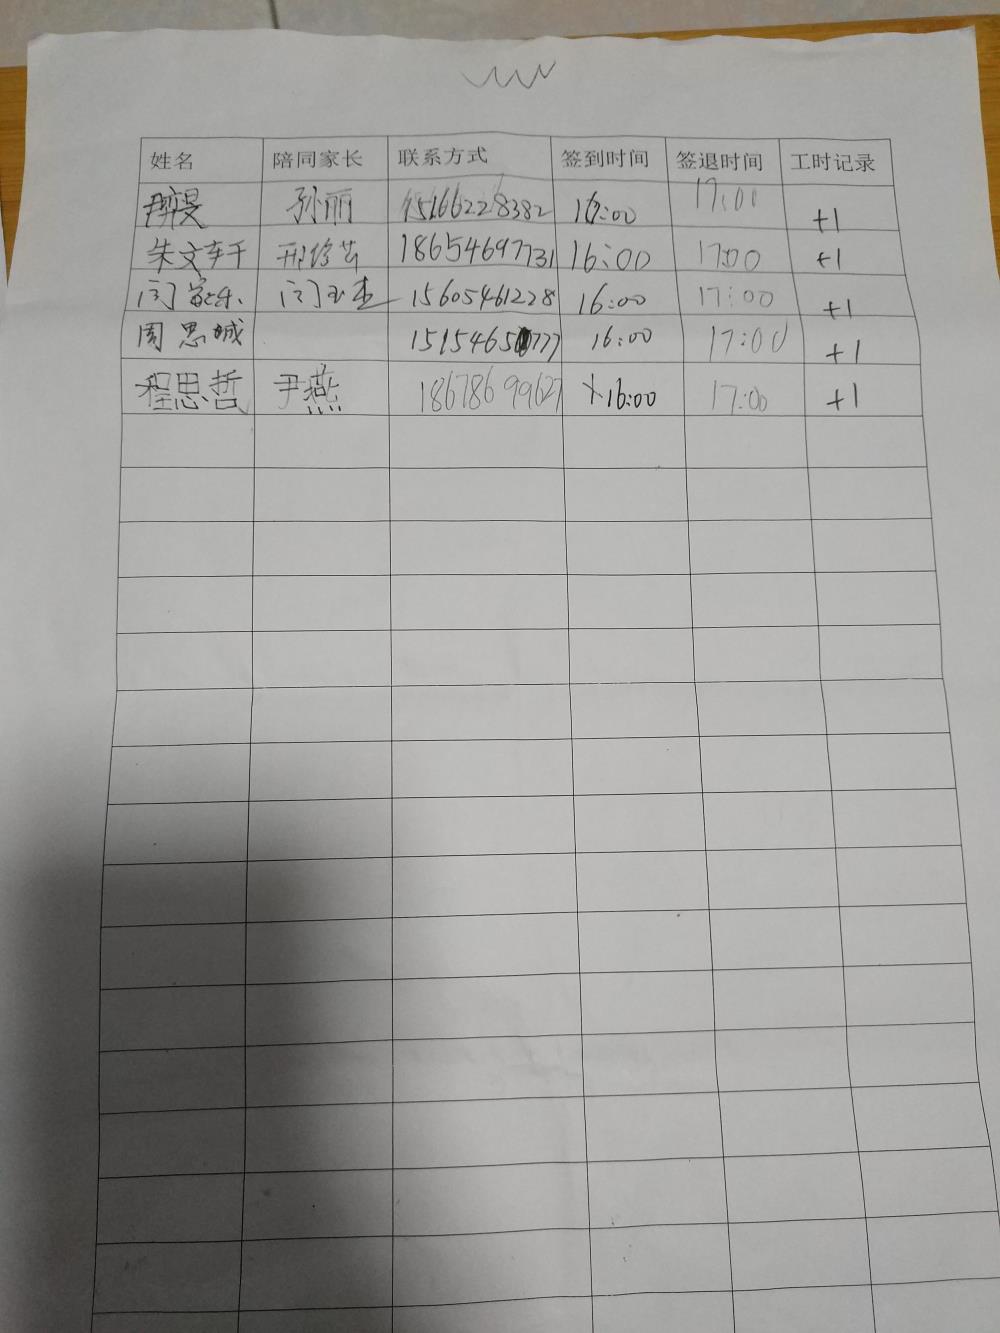 姓名 陪同家长 联系方式 签到时间 签退时间 工时记录
孙丽 15166228382 16:00 17:00 +1
朱文轩 18654697731 16:00 17:00 +1
15605461228 16:00 17:00 +1
周思城 16:00 17:00 +1
程思哲 尹燕 18678699627 16:00 17:00 +1